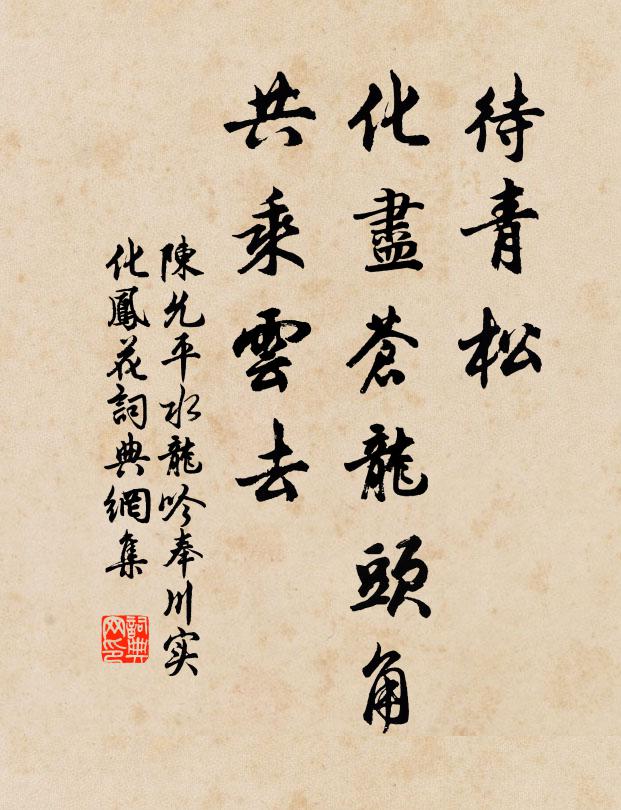 待青松
化盡蒼龍頭角
共乘雲去
陳允平水龍吟奉川实
化鳳花詞典網集
詞典网印